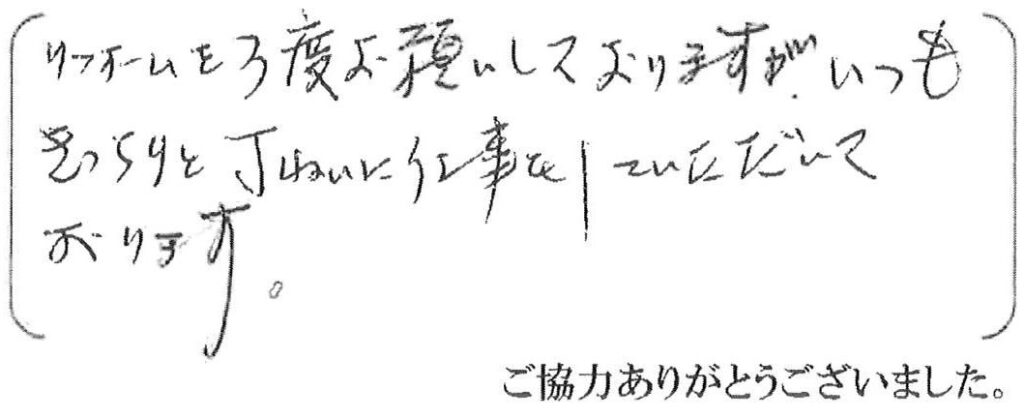 リフォームを3度お願いしておりますが、いつも
きっちりと丁ねいに仕事をしていただいて
おります。
ご協力ありがとうございました。